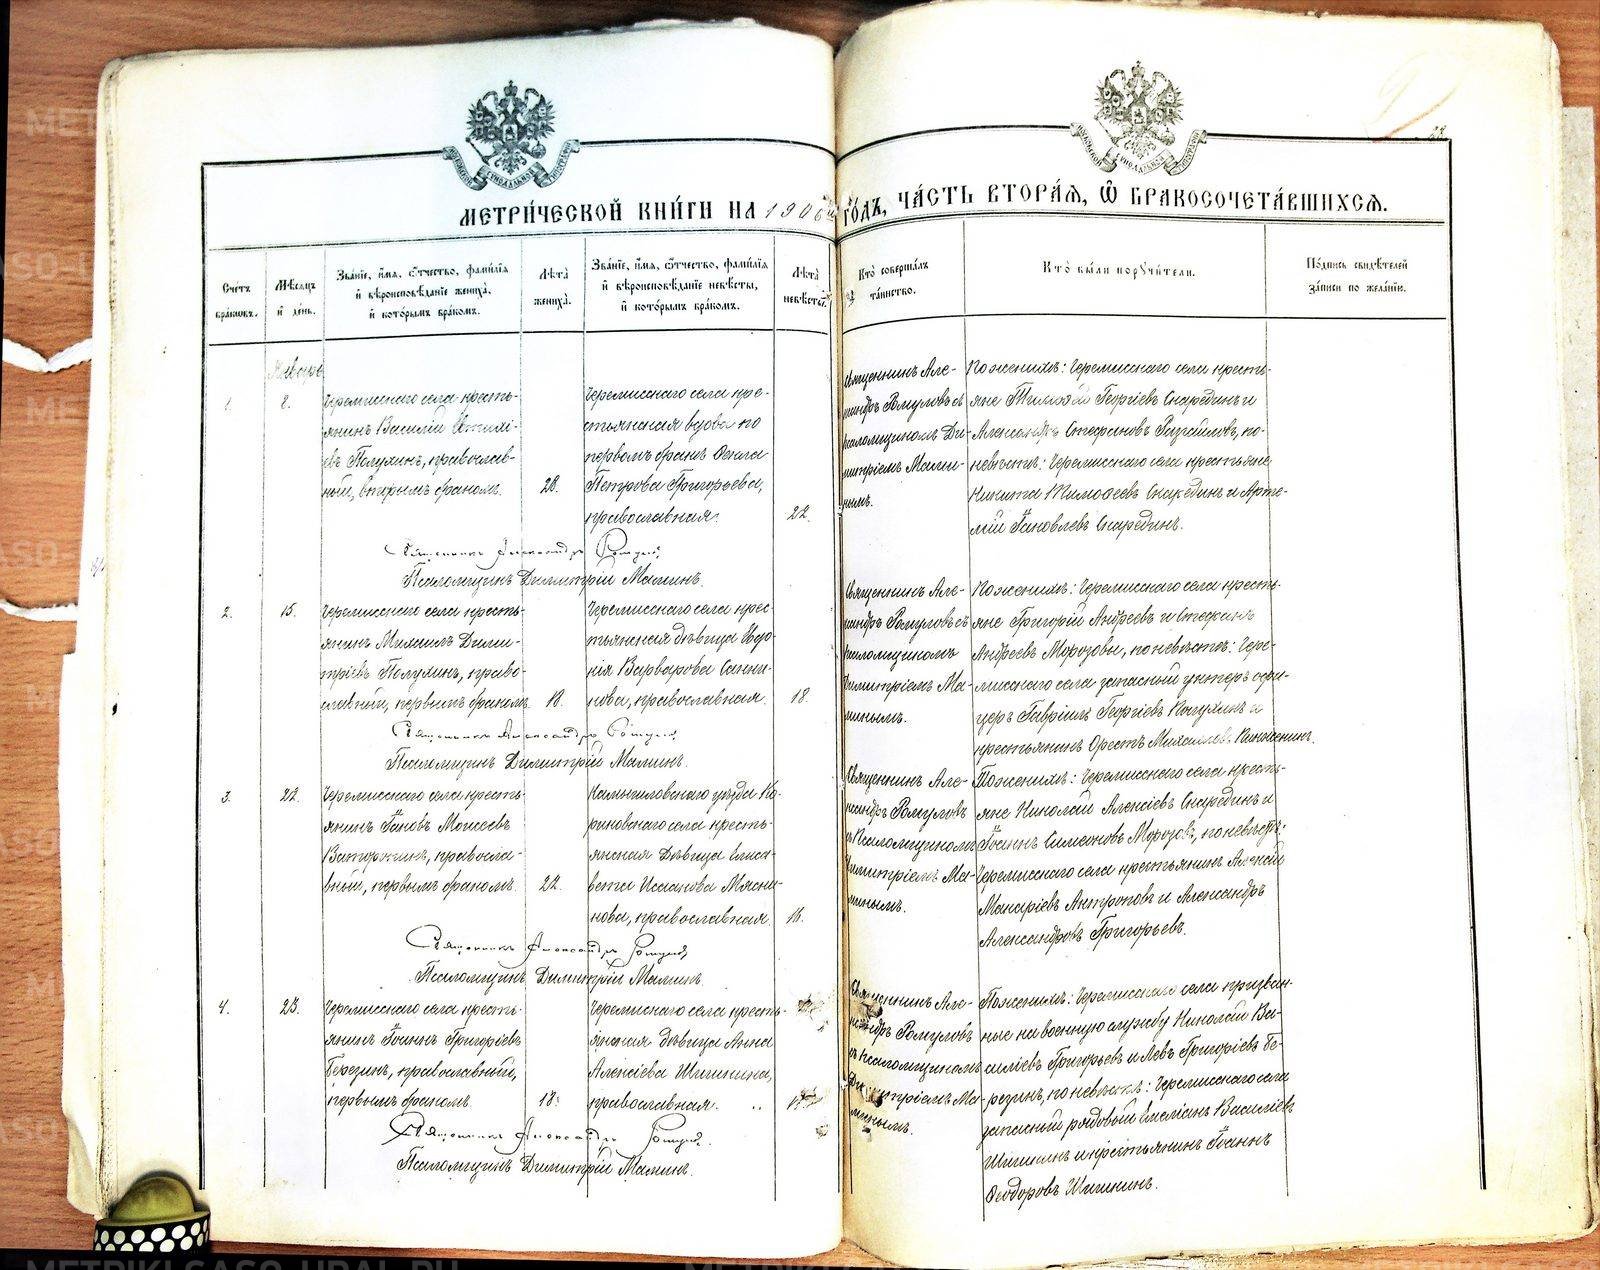 МЕТРИ́ЧЕСКОЙ КНИ́ГИ НА 1906й ГО́ДЪ, ЧА́СТЬ ВТОРА́Я, Ѽ БРАКОСОЧЕТА́ВШИХСЯ.
Сче́тъ бра́ковъ.
Мѣ́сяцъ и де́нь.
Зва́нїе, и́мя, о́тчество, фами́лїя
и вѣроисповѣ́данїе жениха̀,
и кото́рымъ бра́комъ.
Лѣта̀ жениха̀.
Зва́нїе, и́мя, о́тчество, фами́лїя
и вѣроисповѣ́данїе невѣ́сты,
и кото́рымъ бра́комъ.
Лѣта̀ невѣ́сты.
Кто̀ соверша́лъ
та́инство.
Кто̀ бы́ли поручи́тели.
По́дпись свидѣ́телей
за́писи по жела́нїю.
Январь
1.
8.
Черемисскаго села кресть-
янинъ Василій
евъ Полухинъ, православ-
ный, вторымъ бракомъ.
28.
Черемисскаго села кре-
стьянская вдова по
первомъ бракѣ
Петрова Григорьева,
православная.
22.
Священникъ Але-
ксандръ Ромуловъ съ
псаломщикомъ Ди-
митріемъ Мами-
нымъ.
По женихѣ: Черемисскаго села кресть-
яне Тимофей Георгіевъ Снарединъ и
Александръ Стефановъ по-
невѣстѣ: Черемисскаго села крестьяне
Никита Тимофеевъ Снарединъ и Арте-
мій Іаковлевъ Снарединъ.
Священникъ Александръ Ромуловъ
Псаломщикъ Димитрій Маминъ.
2.
15.
Черемисскаго села кресть-
янинъ Михаилъ Дими-
тріевъ Полухинъ, право-
славный, первымъ бракомъ.
18.
Черемисскаго села крес-
тьянская дѣвица Евдо-
кія Варварова
православная.
18.
Священникъ Але-
ксандръ Ромуловъ съ
псаломщикомъ
Димитріемъ Ма-
минымъ.
По женихѣ: Черемисскаго села кресть-
яне Григорій Андреевъ и Стефанъ
Андреевъ Морозовы, по невѣстѣ: Чере-
мисскаго села запасный унтеръ офи-
церъ Гавріилъ Георгіевъ и
крестьянинъ Орестъ Михаиловъ
Священникъ Александръ Ромуловъ
Псаломщикъ Димитрій Маминъ.
3.
22.
Черемисскаго села кресть-
янинъ Іаковъ Моисеевъ
православ-
ный, первымъ бракомъ.
22.
Камышловскаго уѣзда
села кресть-
янская дѣвица Елиса-
вета Исаакова Мясни-
кова, православная.
16.
Священникъ Але-
ксандръ Ромуловъ
съ псаломщикомъ
Димитріемъ Ма-
минымъ.
По женихѣ: Черемисскаго села кресть-
яне Николай Алексіевъ Снарединъ и
Іоаннъ Симеоновъ Морозовъ, по невѣстѣ:
Черемисскаго села крестьянинъ Алексій
Макаріевъ Антроповъ и Александръ
Александровъ Григорьевъ.
Священникъ Александръ Ромуловъ
Псаломщикъ Димитрій Маминъ.
4.
23.
Черемисскаго села кресть-
янинъ Іоаннъ Григоріевъ
Березинъ, православный,
первымъ бракомъ.
18.
Черемисскаго села кресть-
янская дѣвица Анна
Алексіева Шишкина,
православная.
Священникъ Але-
ксандръ Ромуловъ
съ псаломщикомъ
Димитріемъ Ма-
минымъ.
По женихѣ: Черемисскаго села призван-
ные на военную службу Николай Ва-
силіевъ Григорьевъ и Левъ Григоріевъ Бе-
резинъ, по невѣстѣ: Черемисскаго села
запасный рядовой Емеліанъ Василіевъ
Шишкинъ и крестьянинъ Іоаннъ
Феодоровъ Шишкинъ.
Священникъ Александръ Ромуловъ.
Псаломщикъ Димитрій Маминъ.